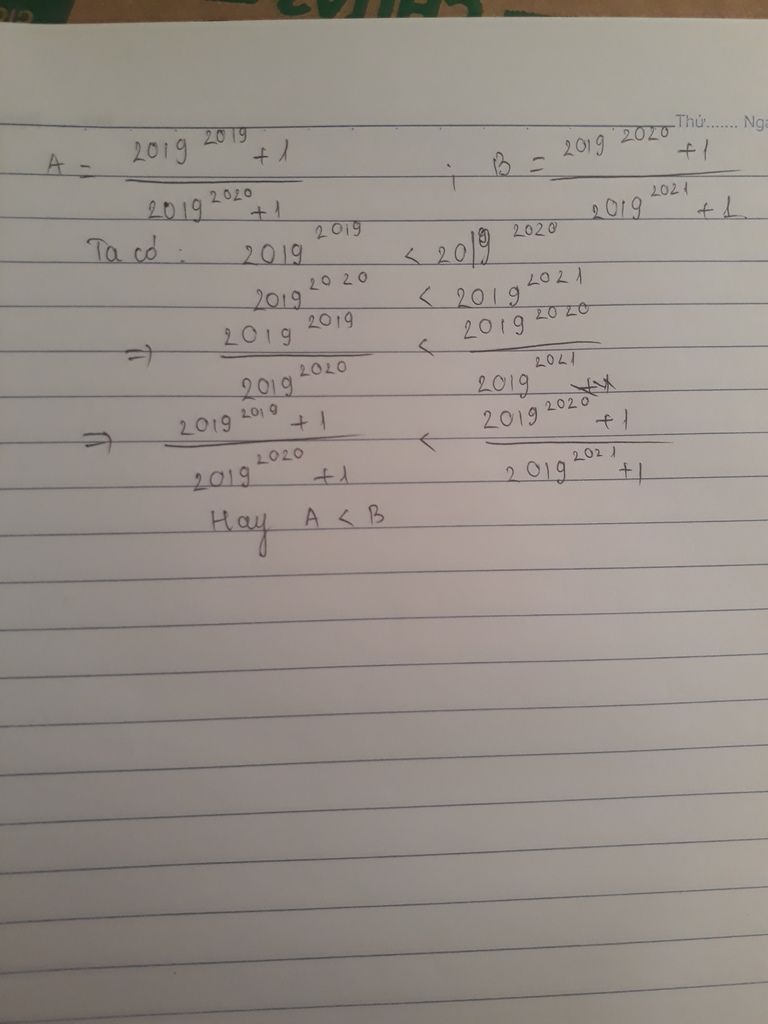 Thứ....... Ngà
A = \frac{2019^{2019} + 1}{2019^{2020} + 1} ; B = \frac{2019^{2020} + 1}{2019^{2021} + 1}
Ta có : 2019^{2019} < 2019^{2020}
2019^{2020} < 2019^{2021}
=> \frac{2019^{2019}}{2019^{2020}} < \frac{2019^{2020}}{2019^{2021}}
=> \frac{2019^{2019} + 1}{2019^{2020} + 1} < \frac{2019^{2020} + 1}{2019^{2021} + 1}
Hay A < B